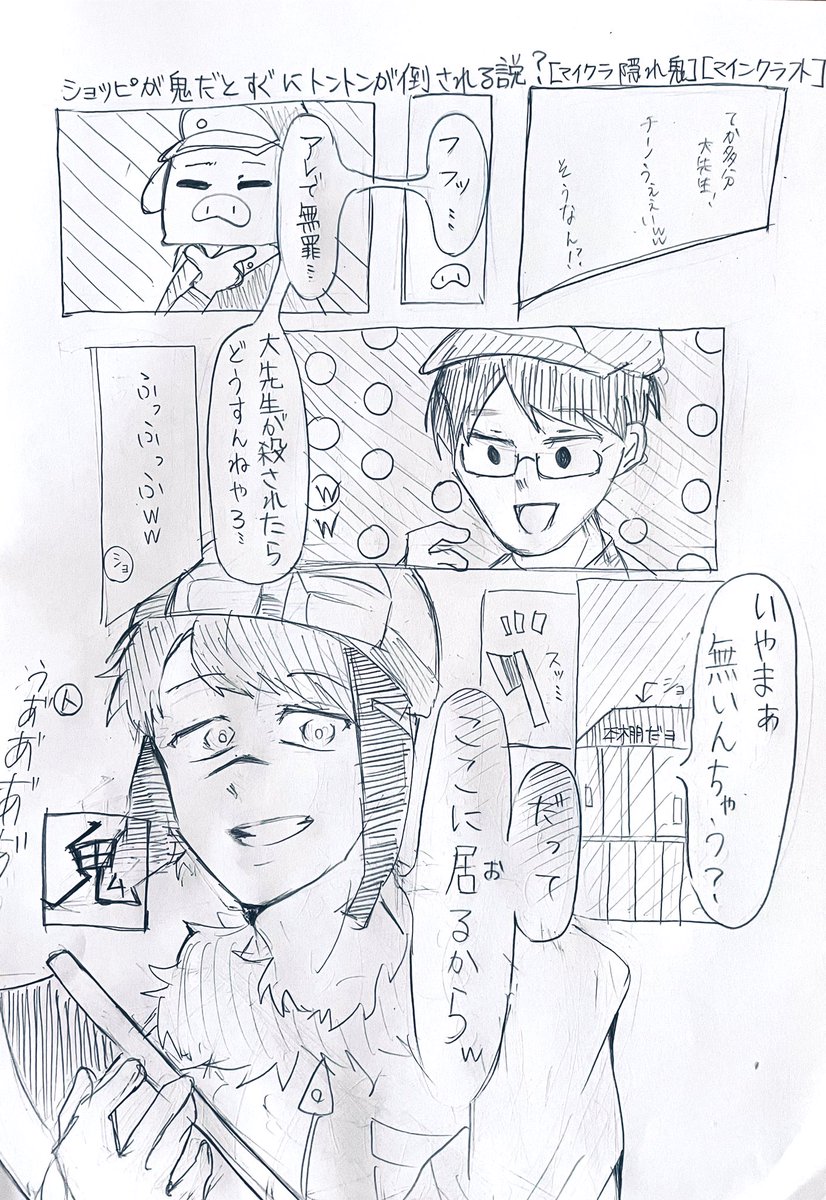 ショッピが鬼だとすぐにトントンが倒される説?[マイクラ隠れ鬼][マインクラフト]
てか多分
大先生、
チーノうぇぇいww
そうなん!?
フフッ…
アレで無罪…
大先生が殺されたら
どうすんねやろ…
ww
ふっふっふww
ショ
いやまぁ
無いんちゃう?
ショ
本棚だヨ
スッ…
だって
ここに居るからw
お
人
うあ゛あ゛あ゛あ゛
鬼